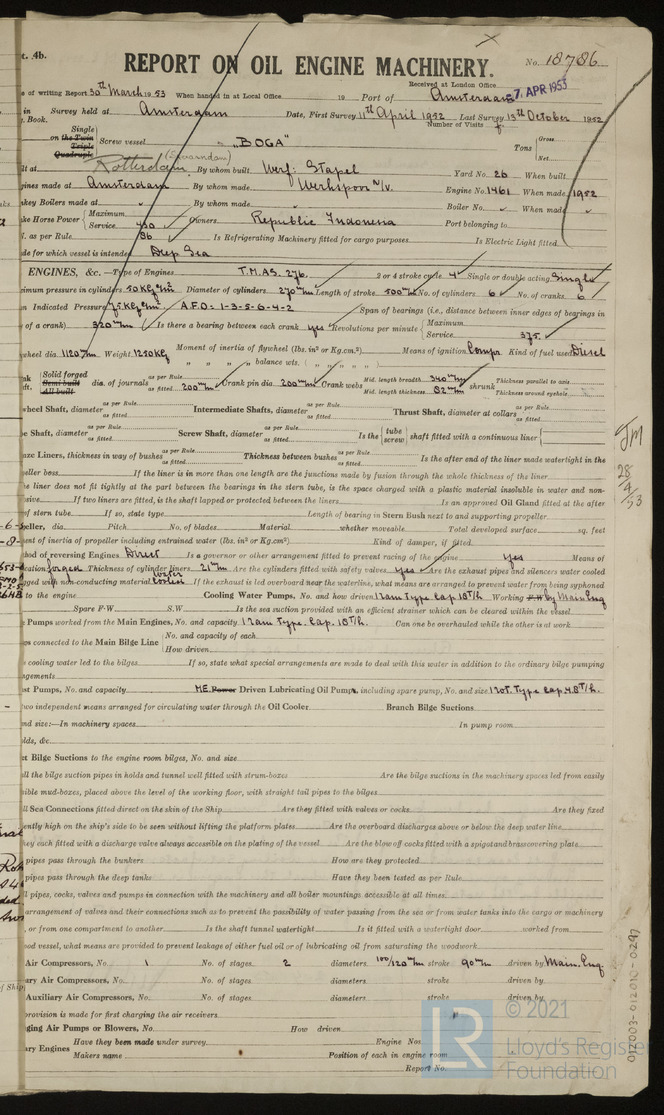 t. 4b.
REPORT ON OIL ENGINE MACHINERY.
No. 18786
Received at London Office 7 APR 1953
e of writing Report 30th March 1953 When handed in at Local Office 19 Port of Amsterdam
in Survey held at Amsterdam Date, First Survey 11th April 1952 Last Survey 13th October 1952
. Book. Number of Visits
on the Single Twin Triple Quadruple Screw vessel "BOGA" Tons Gross Net
ilt at Rotterdam (Zwaandam) By whom built Werf: Stapel Yard No. 26 When built
gines made at Amsterdam By whom made Werkspoor N/V. Engine No. 1461 When made 1952
nkey Boilers made at By whom made Boiler No. When made
ke Horse Power Maximum Service 430 Owners Republic Indonesia Port belonging to
. as per Rule 86 Is Refrigerating Machinery fitted for cargo purposes Is Electric Light fitted
de for which vessel is intended Deep Sea
ENGINES, &c.—Type of Engines T.M.AS. 276. 2 or 4 stroke cycle 4 Single or double acting Single
ximum pressure in cylinders 50 KG/cm² Diameter of cylinders 270 mm Length of stroke 500 mm No. of cylinders 6 No. of cranks 6
n Indicated Pressure 7.5 KG/cm² A.F.O: 1-3-5-6-4-2 Span of bearings (i.e., distance between inner edges of bearings in
y of a crank) 320 mm Is there a bearing between each crank yes Revolutions per minute Maximum Service 375
wheel dia. 1120 mm Weight 1250 KG Moment of inertia of flywheel (lbs. in² or Kg.cm²) Means of ignition Compr. Kind of fuel used Diesel
" " " balance wts. ( " " " " )
nk ft. Solid forged Semi built All built dia. of journals as per Rule as fitted 200 mm Crank pin dia. 200 mm Crank webs Mid. length breadth 340 mm Mid. length thickness 82 mm shrunk Thickness parallel to axis Thickness around eyehole
wheel Shaft, diameter as per Rule as fitted Intermediate Shafts, diameter as per Rule as fitted Thrust Shaft, diameter at collars as per Rule as fitted
be Shaft, diameter as per Rule as fitted Screw Shaft, diameter as per Rule as fitted Is the tube screw shaft fitted with a continuous liner
JM
nze Liners, thickness in way of bushes as per Rule as fitted Thickness between bushes as per Rule as fitted Is the after end of the liner made watertight in the
28/4/53
peller boss If the liner is in more than one length are the junctions made by fusion through the whole thickness of the liner
e liner does not fit tightly at the part between the bearings in the stern tube, is the space charged with a plastic material insoluble in water and non-
sive If two liners are fitted, is the shaft lapped or protected between the liners Is an approved Oil Gland fitted at the after
of stern tube If so, state type Length of bearing in Stern Bush next to and supporting propeller
peller, dia. Pitch No. of blades Material whether moveable Total developed surface sq. feet
ent of inertia of propeller including entrained water (lbs. in² or Kg.cm²) Kind of damper, if fitted
hod of reversing Engines Direct Is a governor or other arrangement fitted to prevent racing of the engine yes Means of
ication forced Thickness of cylinder liners 21 mm Are the cylinders fitted with safety valves yes Are the exhaust pipes and silencers water cooled
gged with non-conducting material water cooled If the exhaust is led overboard near the waterline, what means are arranged to prevent water from being syphoned
to the engine Cooling Water Pumps, No. and how driven 1 ram type cap 10T/h. Working by Main Eng
Spare F.W. S.W. Is the sea suction provided with an efficient strainer which can be cleared within the vessel
e Pumps worked from the Main Engines, No. and capacity 1 ram type. cap. 10T/h. Can one be overhauled while the other is at work
ps connected to the Main Bilge Line No. and capacity of each How driven
e cooling water led to the bilges If so, state what special arrangements are made to deal with this water in addition to the ordinary bilge pumping
ngements
st Pumps, No. and capacity M.E. Power Driven Lubricating Oil Pumps, including spare pump, No. and size 1 rot. type cap 4.8T/h.
two independent means arranged for circulating water through the Oil Cooler Branch Bilge Suctions
nd size:—In machinery spaces In pump room
olds, &c.
ct Bilge Suctions to the engine room bilges, No. and size
ll the bilge suction pipes in holds and tunnel well fitted with strum-boxes Are the bilge suctions in the machinery spaces led from easily
sible mud-boxes, placed above the level of the working floor, with straight tail pipes to the bilges
ll Sea Connections fitted direct on the skin of the Ship Are they fitted with valves or cocks Are they fixed
ently high on the ship's side to be seen without lifting the platform plates Are the overboard discharges above or below the deep water line
hey each fitted with a discharge valve always accessible on the plating of the vessel Are the blow off cocks fitted with a spigot and brass covering plate
pipes pass through the bunkers How are they protected
pipes pass through the deep tanks Have they been tested as per Rule
l pipes, cocks, valves and pumps in connection with the machinery and all boiler mountings accessible at all times
arrangement of valves and their connections such as to prevent the possibility of water passing from the sea or from water tanks into the cargo or machinery
, or from one compartment to another Is the shaft tunnel watertight Is it fitted with a watertight door worked from
ood vessel, what means are provided to prevent leakage of either fuel oil or of lubricating oil from saturating the woodwork
Air Compressors, No. 1 No. of stages 2 diameters 100/120 mm stroke 90 mm driven by Main Eng
ary Air Compressors, No. No. of stages diameters stroke driven by
Auxiliary Air Compressors, No. No. of stages diameters stroke driven by
rovision is made for first charging the air receivers
nging Air Pumps or Blowers, No. How driven
ary Engines Have they been made under survey Engine Nos.
Makers name Position of each in engine room
Report No.
012003-012010-0297
LR
© 2021
Lloyd's Register
Foundation